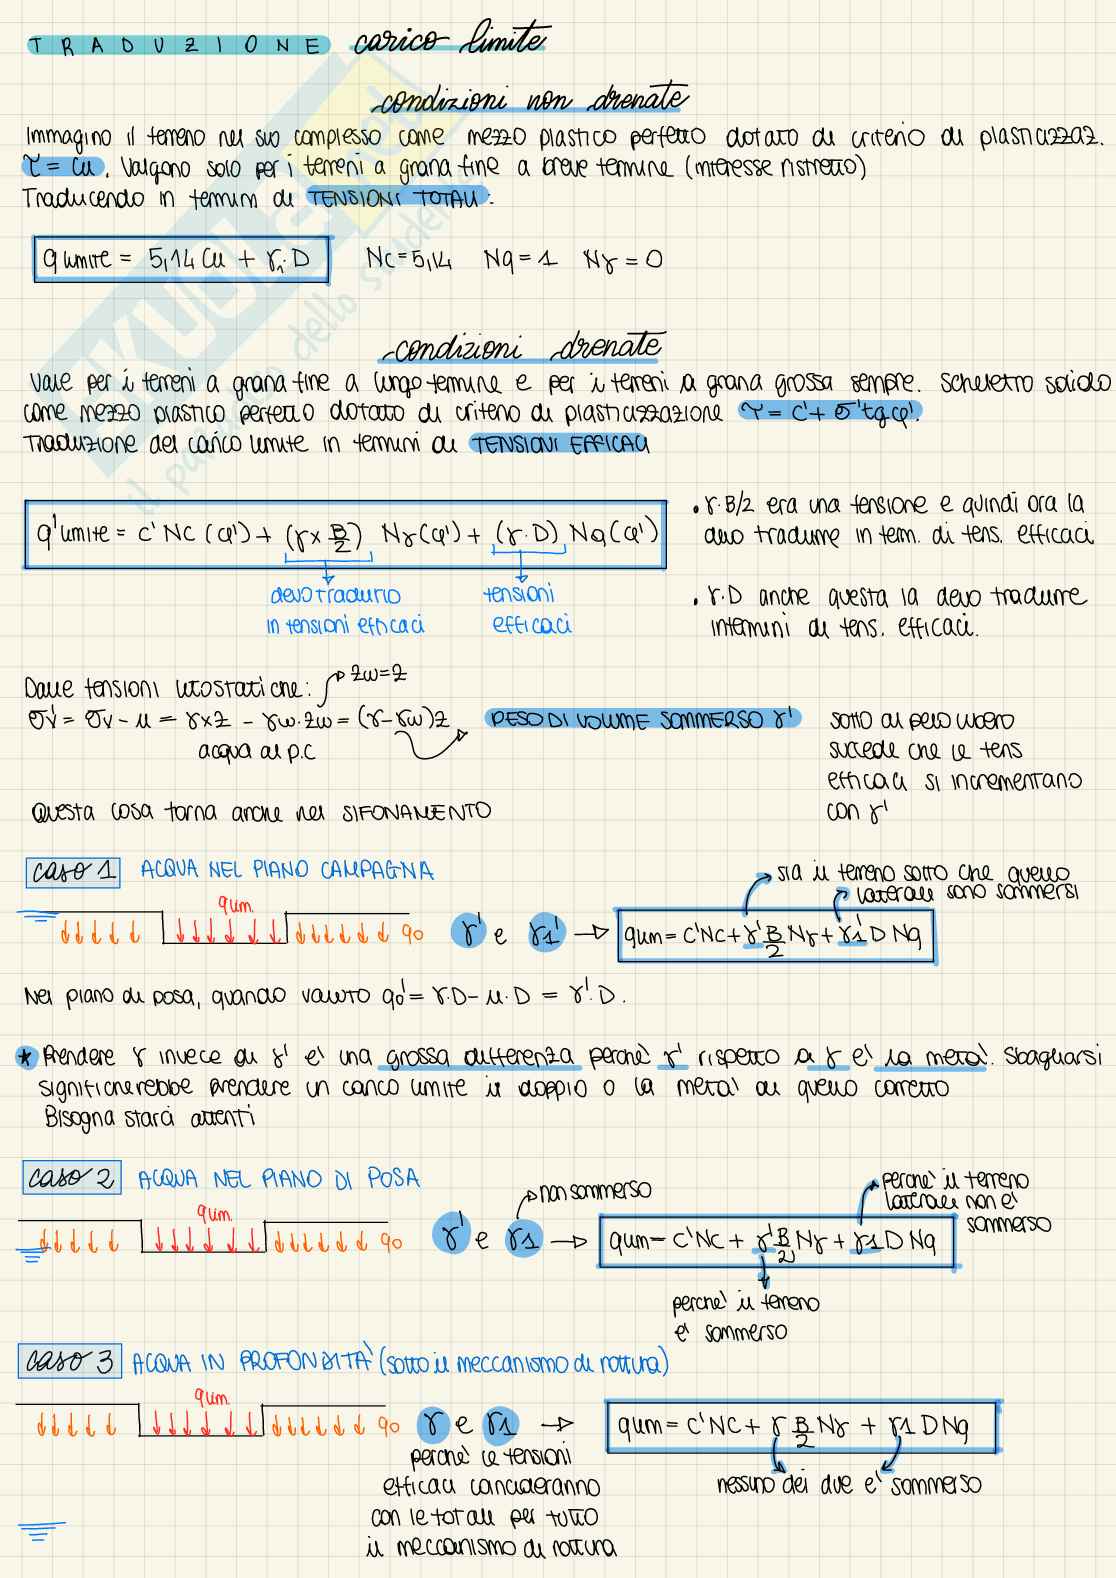 TRADUZIONE carico limite
condizioni non drenate
Immagino il terreno nel suo complesso come mezzo plastico perfetto dotato di criterio di plasticizzaz.
τ = Cu. Valgono solo per i terreni a grana fine a breve termine (interesse ristretto)
Traducendo in termini di TENSIONI TOTALI:
q limite = 5,14 Cu + γ₁·D Nc = 5,14 Nq = 1 Nγ = 0
condizioni drenate
Vale per i terreni a grana fine a lungo termine e per i terreni a grana grossa sempre. Scheletro solido
come mezzo plastico perfetto dotato di criterio di plasticizzazione τ = c' + σ' tg φ'
Traduzione del carico limite in termini di TENSIONI EFFICACI
q' limite = c' Nc (φ') + (γ × B/2) Nγ (φ') + (γ·D) Nq (φ')
devo tradurlo
in tensioni efficaci
tensioni
efficaci
• γ·B/2 era una tensione e quindi ora la
devo tradurre in term. di tens. efficaci
• γ·D anche questa la devo tradurre
intermini di tens. efficaci.
Dalle tensioni litostatiche: zw = z
σv' = σv - u = γ × z - γw · zw = (γ - γw) z PESO DI VOLUME SOMMERSO γ'
acqua al p.c
sotto al pelo libero
succede che le tens
efficaci si incrementano
con γ'
Questa cosa torna anche nel SIFONAMENTO
caso 1 ACQUA NEL PIANO CAMPAGNA
sia il terreno sotto che quello
laterale sono sommersi
qlim.
q0 γ' e γ1' → qlim = c'Nc + γ' B/2 Nγ + γ1' D Nq
Nel piano di posa, quando valuto q0' = γ·D - u·D = γ'·D.
* Prendere γ invece di γ' e' una grossa differenza perchè γ' rispetto a γ e' la meta'. Sbagliarsi
significherebbe prendere un carico limite il doppio o la meta' di quello corretto
Bisogna starci attenti
caso 2 ACQUA NEL PIANO DI POSA
non sommerso
perche' il terreno
laterale non e'
sommerso
qlim.
q0 γ' e γ1 → qlim = c'Nc + γ' B/2 Nγ + γ1 D Nq
perche' il terreno
e' sommerso
caso 3 ACQUA IN PROFONDITÀ (sotto il meccanismo di rottura)
qlim.
q0 γ e γ1 → qlim = c'Nc + γ B/2 Nγ + γ1 D Nq
perche' le tensioni
efficaci coincideranno
con le totali per tutto
il meccanismo di rottura
nessuno dei due e' sommerso